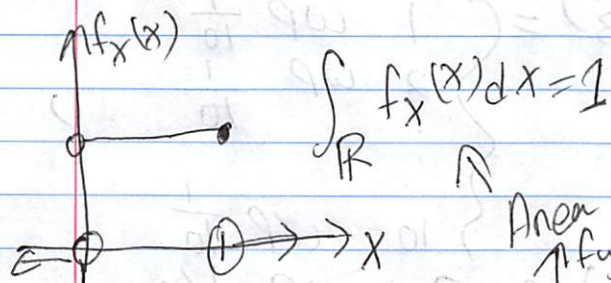 f_X(x)
∫_ℝ f_X(x) dx = 1
1 x
Area